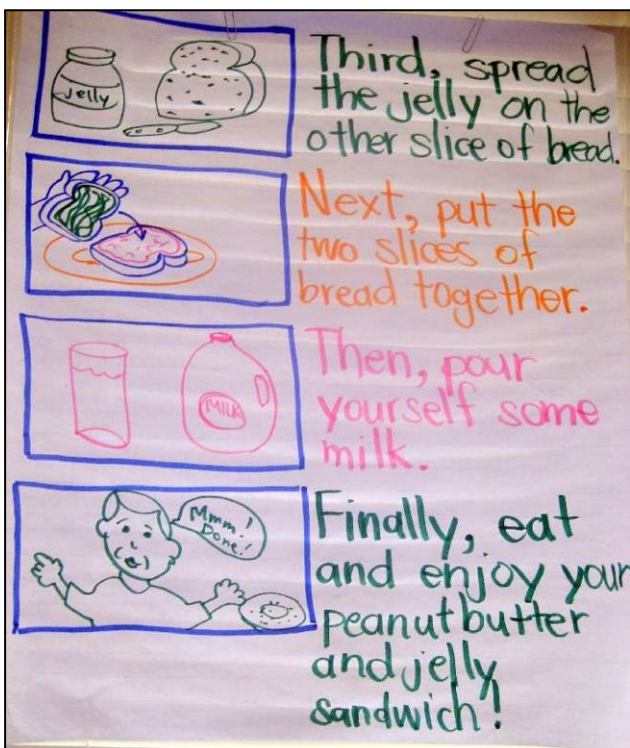 jelly
Third, spread
the jelly on the
other slice of bread.
Next, put the
two slices of
bread together.
MILK
Then, pour
yourself some
milk.
Mmm!
Done!
Finally, eat
and enjoy your
peanut butter
and jelly
sandwich!